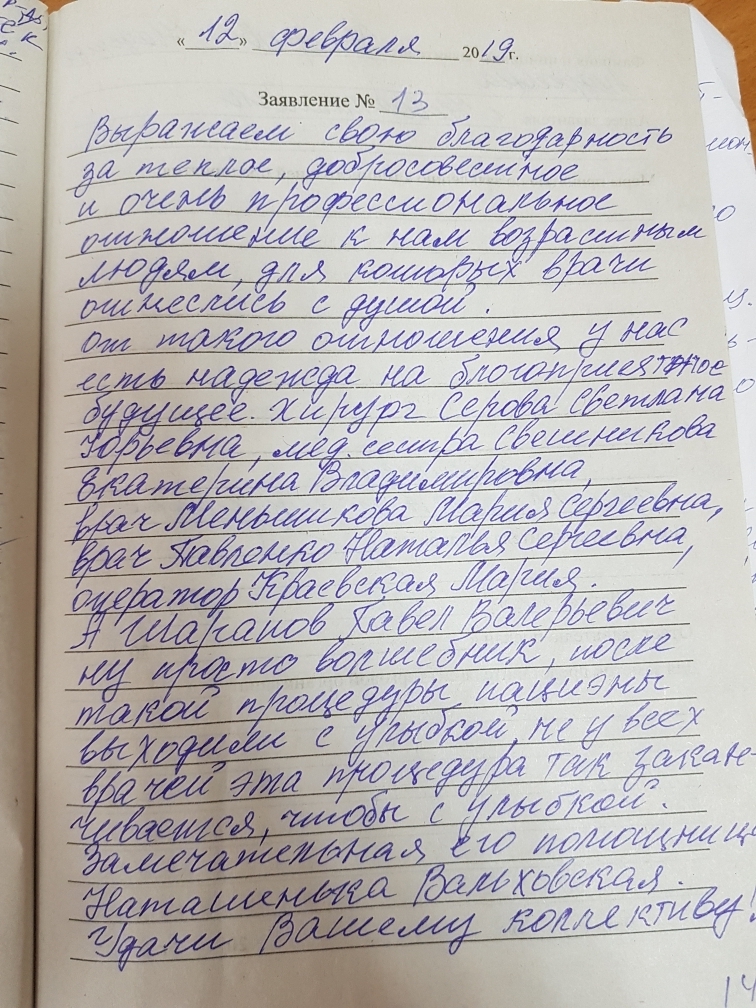 « 12 » февраля 2019 г.
Заявление № 13
Выражаем свою благодарность
за теплое, добросовестное
и очень профессиональное
отношение к нам возрастным
людям, для которых врачи
отнеслись с душой.
от такого отношения у нас
есть надежда на благоприятное
будущее. Хирург Серова Светлана
Юрьевна, мед. сестра Свешникова
Екатерина Владимировна,
врач Меньшикова Мария Сергеевна,
врач Павленко Наталья Сергеевна,
оператор Краевская Мария.
А Шарапов Павел Валерьевич
ну просто волшебник, после
такой процедуры пациэны
выходили с улыбкой, не у всех
врачей эта процедура так закан-
чивается, чтобы с улыбкой.
Замечательная его помощница
Наташенька Вальховская.
Удачи Вашему коллективу!
14